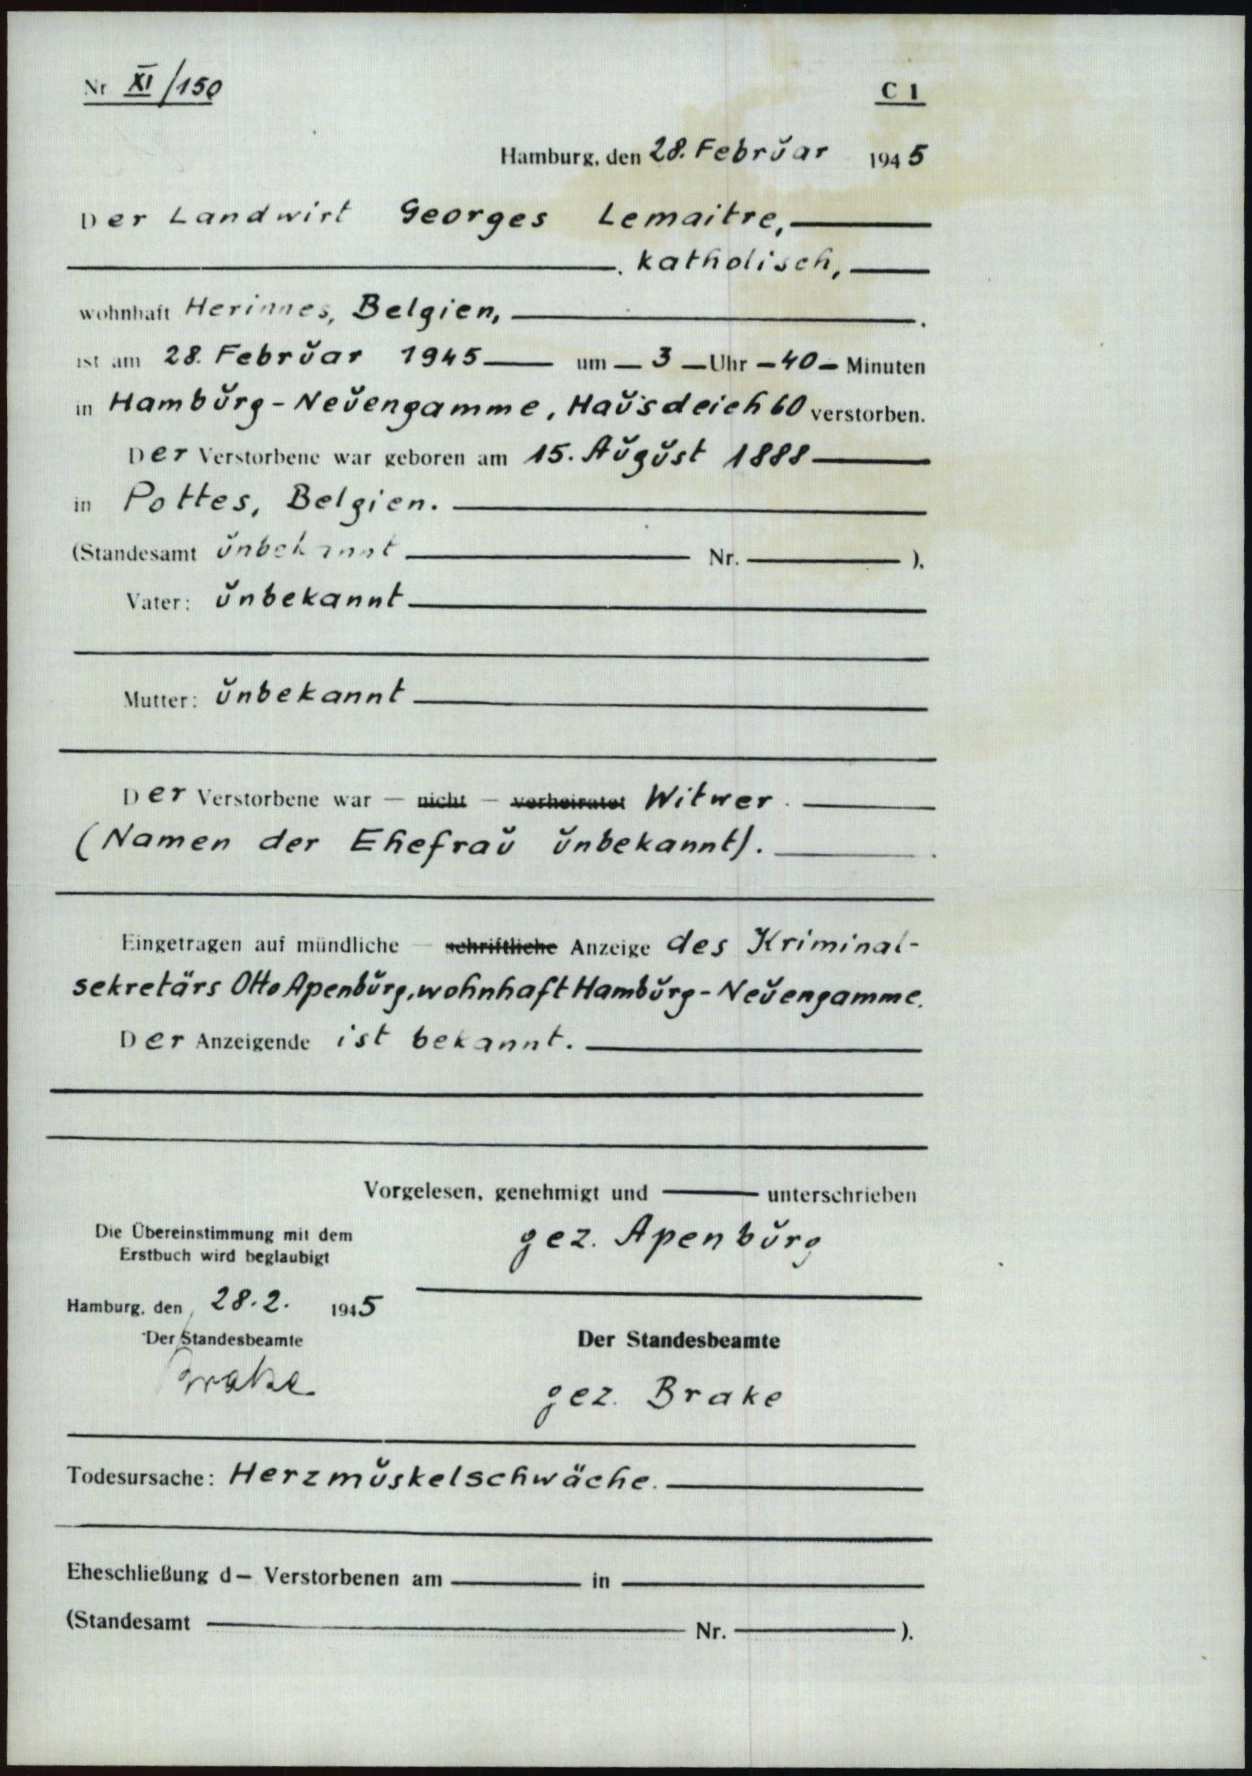 Nr XI/150
C 1
Hamburg, den 28. Februar 1945
Der Landwirt Georges Lemaitre,
, katholisch,
wohnhaft Herinnes, Belgien,
ist am 28. Februar 1945 um 3 Uhr 40 Minuten
in Hamburg-Neuengamme, Hausdeich 60 verstorben.
Der Verstorbene war geboren am 15. August 1888
in Pottes, Belgien.
(Standesamt unbekannt Nr. ).
Vater: unbekannt
Mutter: unbekannt
Der Verstorbene war — nicht — verheiratet Witwer.
(Namen der Ehefrau unbekannt).
Eingetragen auf mündliche — schriftliche Anzeige des Kriminal-
sekretärs Otto Apenburg, wohnhaft Hamburg-Neuengamme.
Der Anzeigende ist bekannt.
Vorgelesen, genehmigt und unterschrieben
gez. Apenburg
Die Übereinstimmung mit dem
Erstbuch wird beglaubigt
Hamburg, den 28.2. 1945
Der Standesbeamte
Brake
Der Standesbeamte
gez. Brake
Todesursache: Herzmuskelschwäche.
Eheschließung d— Verstorbenen am in
(Standesamt Nr. ).